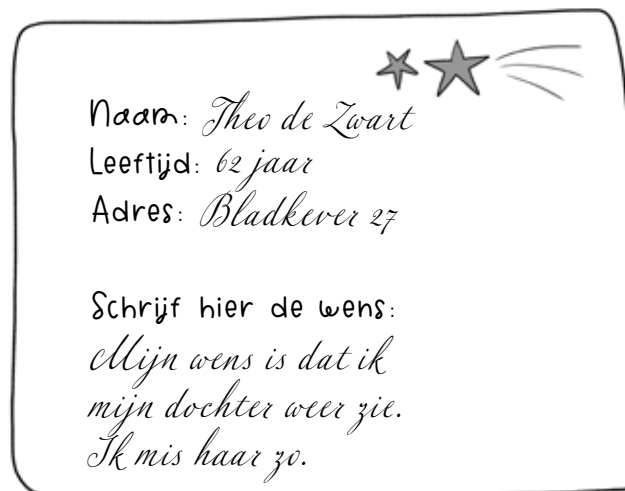 Naam: Theo de Zwart
Leeftijd: 62 jaar
Adres: Bladkever 27
Schrijf hier de wens:
Mijn wens is dat ik
mijn dochter weer zie.
Ik mis haar zo.